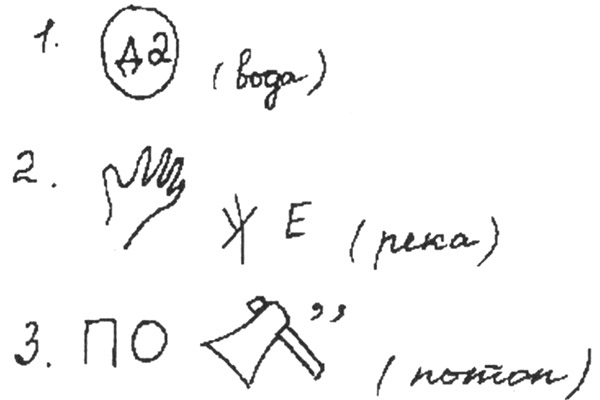 1. Да (вода)
2. У Е (река)
3. ПО ,, (потоп)